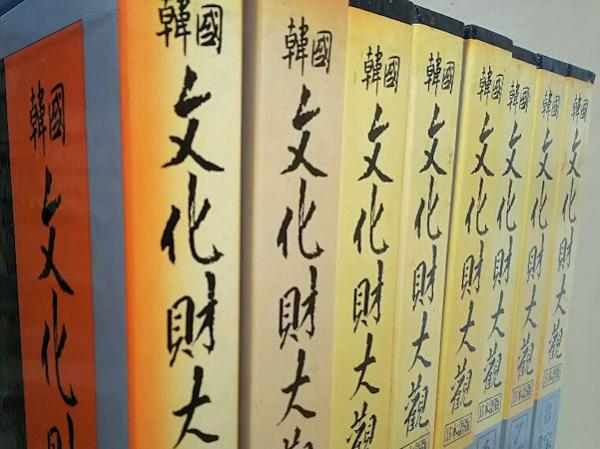 韓國 文化財
韓國 文化財大
韓國 文化財大
韓國 文化財大
韓國 文化財大觀
韓國 文化財大觀 日本語版
韓國 文化財大觀 日本語版 6
韓國 文化財大觀 日本語版 7
韓國 文化財大觀 日本語版 8